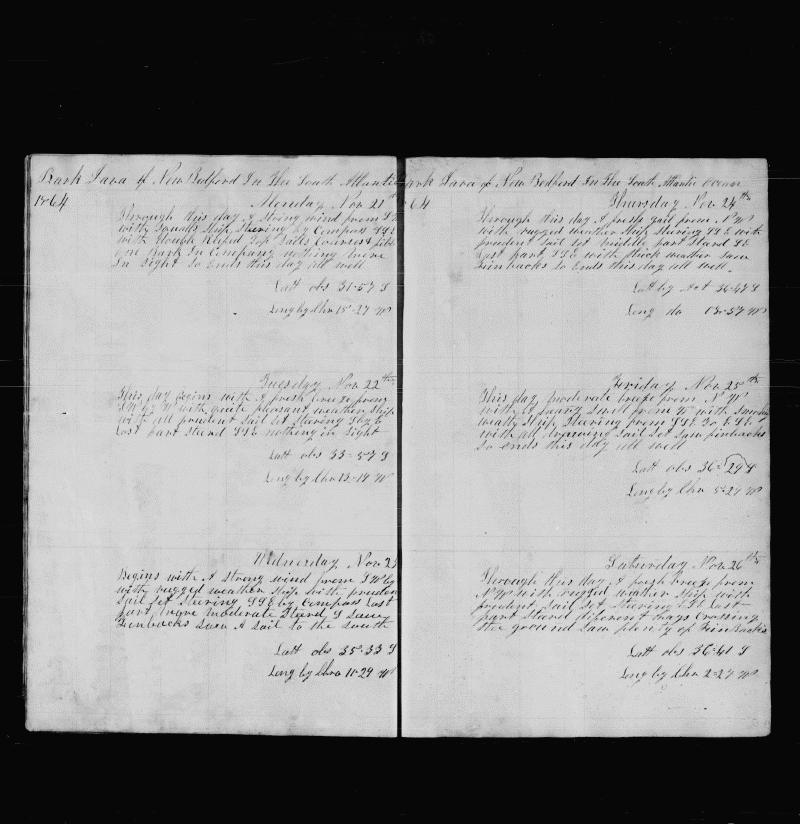 Bark Lara of New Bedford In The South Atlantic
1864
Monday Nov 21st
Through this day A strong wind from S
with Squalls Ship Steering by Compass SSE
with Double Reefed Top Sails Courses
one Bark In Company nothing more
In Sight So Ends this day all well
Latt obs 31-57 S
Long by Chro 15-27 W
Tuesday Nov 22nd
This day begins with A fresh breeze from
with quite pleasant weather Ship
with all prudent Sail Set Steering S by E
Last part Steerd SSE nothing in Sight
Latt obs 33=57 S
Long by Chro 13-19 W
Wednesday Nov 23
Begins with A Strong wind from SW by
with rugged weather Ship with prudent
Sail Set Steering SSE by Compass Last
part more moderate Steerd S Saw
Finbacks Saw A Sail to the South
Latt obs 35=33 S
Long by Chro 11-29 W
Bark Lara of New Bedford In The South Atlantic Ocean
64
Thursday Nov 24th
Through this day A fresh gail from NW
with rugged weather Ship Steering SSE with
prudent Sail Set Middle part Steard SE
Last part SSE with thick weather Saw
Finbacks So Ends this day all well
Latt by Act 36-47 S
Long do
Friday Nov 25th
This day moderate breeze from N W
with A heavy Swell from W with Smoky
weath Ship Steering from SSE to E SE
with all drawing Sail Set Saw finbacks
So ends this day all well
Latt obs 36=29 S
Long by Chro 5=24 W
Saturday Nov 26th
Through this day A fresh breeze from
NW with rugged weather Ship with
prudent Sail Set Steering ESE Last
part Steerd different ways Crossing
the ground Saw plenty of Finbacks
Latt obs 36=41 S
Long by Chro 2=27 W